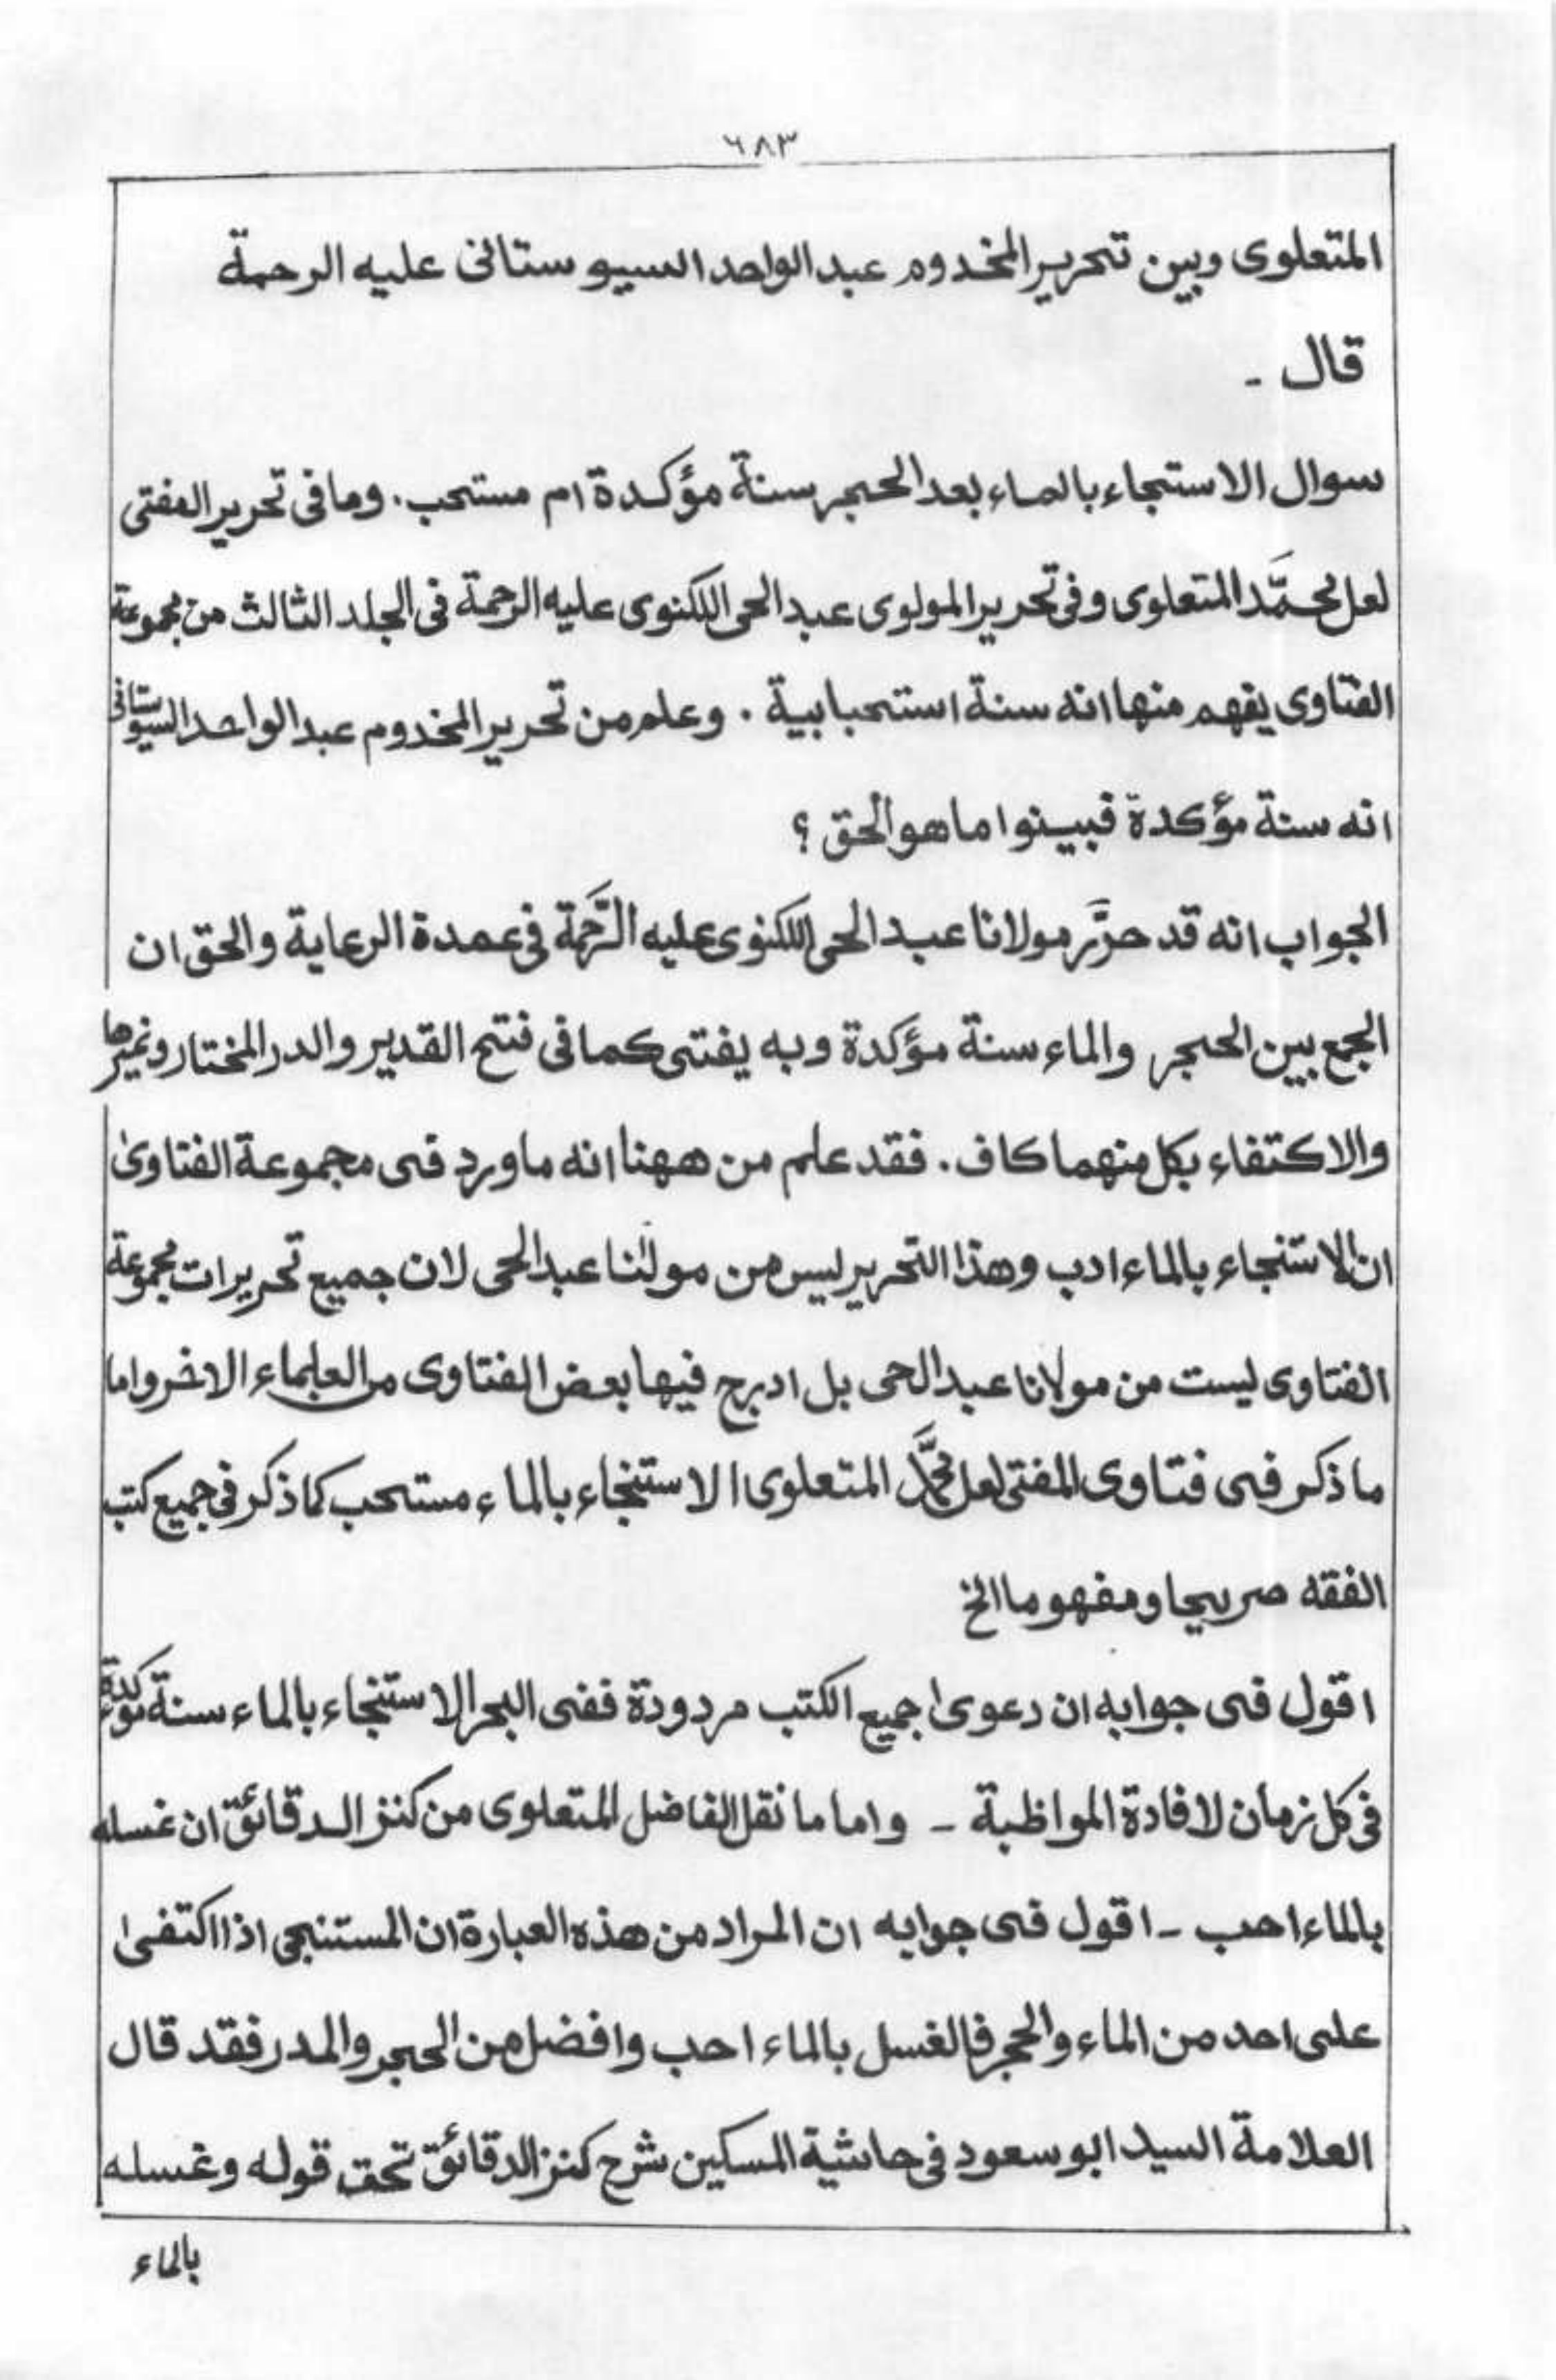 ٦٨٣
المتعلوى وبين تحرير المخدوم عبد الواحد السيو ستانى عليه الرحمة
قال -
سوال الاستنجاء بالماء بعد الحجر سنة مؤكدة ام مستحب. وما فى تحرير المفتى
لعل محمَّد المتعلوى وفى تحرير المولوى عبد الحى اللكنوى عليه الرحمة فى الجلد الثالث من مجموعة
الفتاوى يفهم منها انه سنة استحبابية . وعلم من تحرير المخدوم عبد الواحد السيوستانى
انه سنة مؤكدة فبينوا ما هو الحق ؟
الجواب انه قد حرَّر مولانا عبد الحى اللكنوى عليه الرَّحمة فى عمدة الرعاية والحق ان
الجمع بين الحجر والماء سنة مؤكدة وبه يفتى كما فى فتح القدير والدر المختار وغيرها
والاكتفاء بكل منهما كاف. فقد علم من ههنا انه ما ورد فى مجموعة الفتاوىٰ
ان الاستنجاء بالماء ادب وهذا التحرير ليس من مولٰنا عبد الحى لان جميع تحريرات مجموعة
الفتاوى ليست من مولانا عبد الحى بل ادرج فيها بعض الفتاوى من العلماء الاخر واما
ما ذكر فى فتاوى المفتى لعل محمَّد المتعلوى الاستنجاء بالماء مستحب كما ذكر فى جميع كتب
الفقه صريحا ومفهوما الخ
اقول فى جوابه ان دعوىٰ جميع الكتب مردودة ففى البحر الاستنجاء بالماء سنة مؤكدة
فى كل زمان لافادة المواظبة - واما ما نقل الفاضل المتعلوى من كنز الدقائق ان غسله
بالماء احب - اقول فى جوابه ان المراد من هذه العبارة ان المستنجى اذا اكتفىٰ
على احد من الماء والحجر فالغسل بالماء احب وافضل من الحجر والمدر فقد قال
العلامة السيد ابو سعود فى حاشية المسكين شرح كنز الدقائق تحت قوله وغسله
بالماء